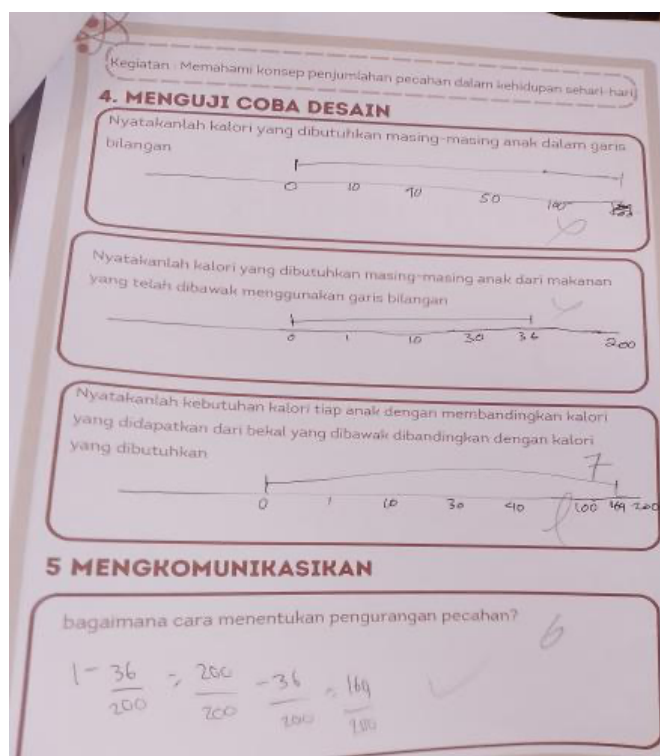 Kegiatan : Memahami konsep penjumlahan pecahan dalam kehidupan sehari-hari
4. MENGUJI COBA DESAIN
Nyatakanlah kalori yang dibutuhkan masing-masing anak dalam garis
bilangan
0 10 40 50 100
Nyatakanlah kalori yang dibutuhkan masing-masing anak dari makanan
yang telah dibawak menggunakan garis bilangan
0 1 10 30 36 200
Nyatakanlah kebutuhan kalori tiap anak dengan membandingkan kalori
yang didapatkan dari bekal yang dibawak dibandingkan dengan kalori
yang dibutuhkan
7
0 1 10 30 40 100 169 200
5 MENGKOMUNIKASIKAN
bagaimana cara menentukan pengurangan pecahan?
6
1 - 36/200 = 200/200 - 36/200 = 169/200